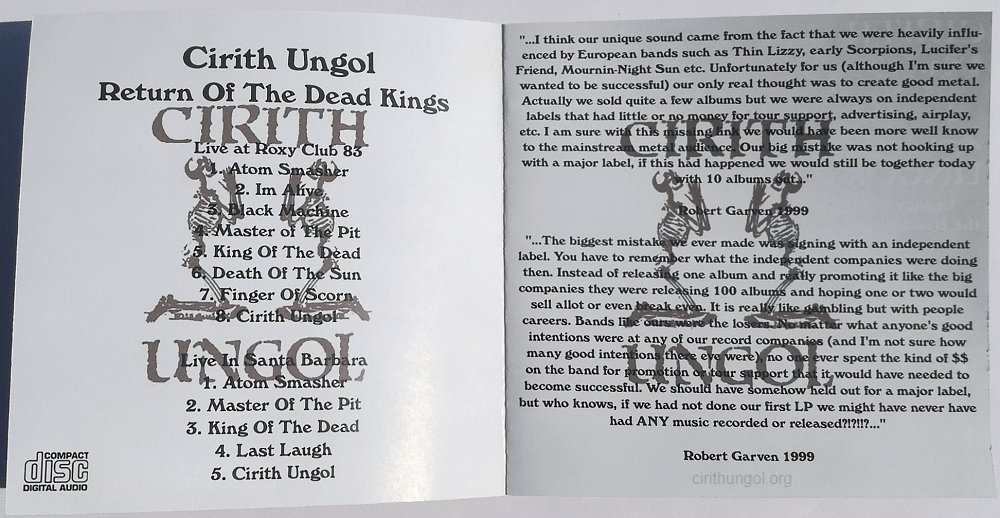 Cirith Ungol
Return Of The Dead Kings
CIRITH
Live at Roxy Club 83
1. Atom Smasher
2. Im Alive
3. Black Machine
4. Master of The Pit
5. King Of The Dead
6. Death Of The Sun
7. Finger Of Scorn
8. Cirith Ungol
UNGOL
Live In Santa Barbara
1. Atom Smasher
2. Master Of The Pit
3. King Of The Dead
4. Last Laugh
5. Cirith Ungol
COMPACT
disc
DIGITAL AUDIO
"...I think our unique sound came from the fact that we were heavily influ-
enced by European bands such as Thin Lizzy, early Scorpions, Lucifer's
Friend, Mournin-Night Sun etc. Unfortunately for us (although I'm sure we
wanted to be successful) our only real thought was to create good metal.
Actually we sold quite a few albums but we were always on independent
labels that had little or no money for tour support, advertising, airplay,
etc. I am sure with this missing link we would have been more well know
to the mainstream metal audience. Our big mistake was not hooking up
with a major label, if this had happened we would still be together today
with 10 albums out.."
CIRITH
Robert Garven 1999
"...The biggest mistake we ever made was signing with an independent
label. You have to remember what the independent companies were doing
then. Instead of releasing one album and really promoting it like the big
companies they were releasing 100 albums and hoping one or two would
sell allot or even break even. It is really like gambling but with people
careers. Bands like ours were the losers. No matter what anyone's good
intentions were at any of our record companies (and I'm not sure how
many good intentions there eve were), no one ever spent the kind of $$
on the band for promotion or tour support that it would have needed to
become successful. We should have somehow held out for a major label,
but who knows, if we had not done our first LP we might have never have
had ANY music recorded or released?!?!!?..."
UNGOL
Robert Garven 1999
cirithungol.org